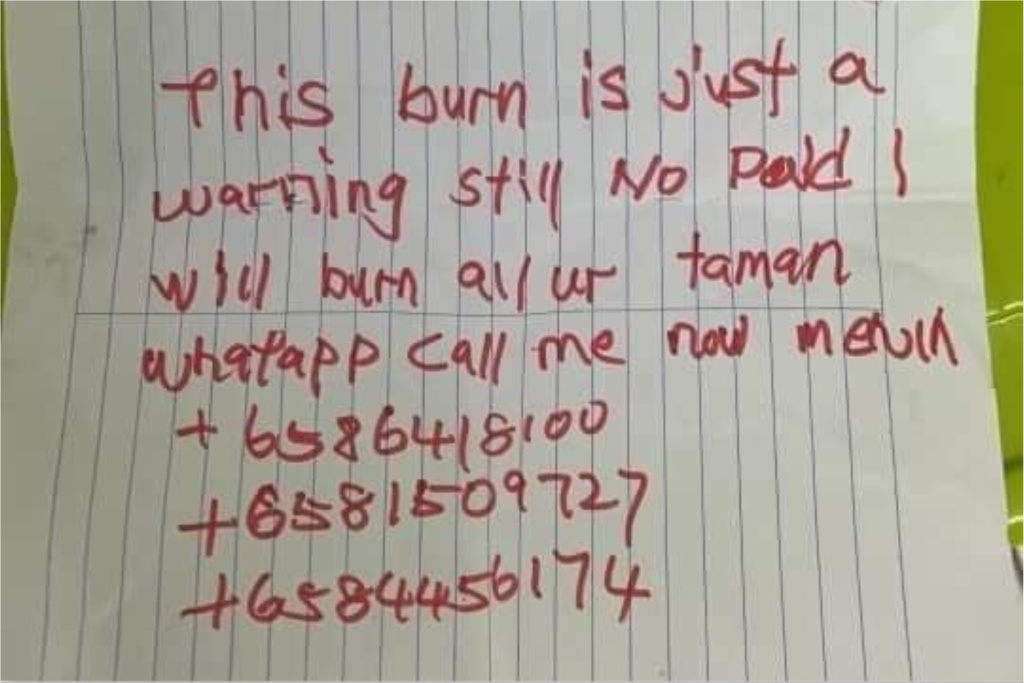 This burn is just a
warning still No Paid I
will burn all ur taman
whatapp call me now mervin
+6586418100
+6581509727
+6584456174